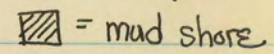 = mud shore